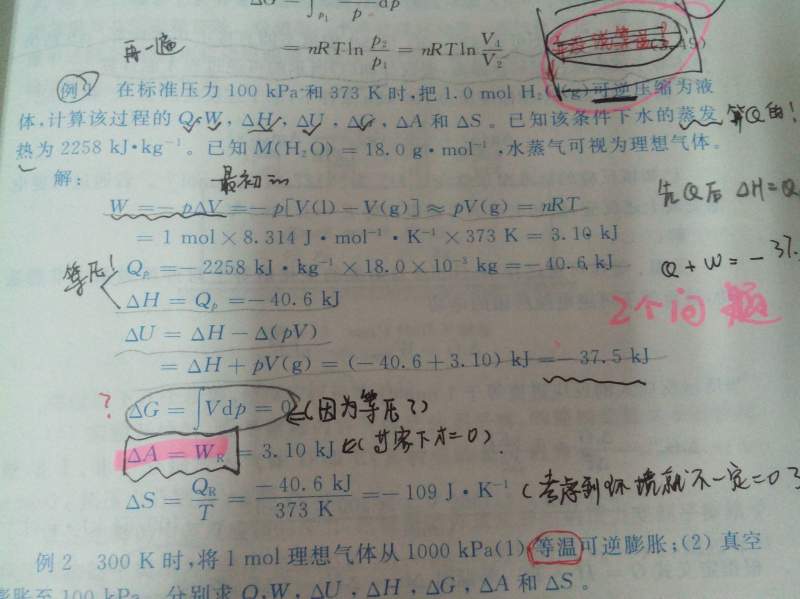 ΔG = ∫p₁ p dp
再一遍
= nRT ln p₂/p₁ = nRT ln V₁/V₂
例1 在标准压力 100 kPa 和 373 K 时,把 1.0 mol H₂O(g)可逆压缩为液
体,计算该过程的 Q,W,ΔH,ΔU,ΔG,ΔA 和 ΔS。已知该条件下水的蒸发 算Q的!
热为 2258 kJ·kg⁻¹。已知 M(H₂O)=18.0 g·mol⁻¹,水蒸气可视为理想气体。
解: 最初
先Q后 ΔH=Q
W = -pΔV = -p[V(l)-V(g)] ≈ pV(g) = nRT
= 1 mol×8.314 J·mol⁻¹·K⁻¹×373 K = 3.10 kJ
等压! Qₚ = -2258 kJ·kg⁻¹×18.0×10⁻³ kg = -40.6 kJ
Q+W=-37.
ΔH = Qₚ = -40.6 kJ
2个问题
ΔU = ΔH - Δ(pV)
= ΔH + pV(g) = (-40.6+3.10) kJ = -37.5 kJ
? ΔG = ∫Vdp = 0 ⇐(因为等压了)
ΔA = W_R = 3.10 kJ ⇐(等容下才=0)
ΔS = Q_R/T = -40.6 kJ/373 K = -109 J·K⁻¹ (考虑到环境就不一定=0了
例 2 300 K 时,将 1 mol 理想气体从 1000 kPa(1) 等温可逆膨胀;(2) 真空
膨胀至 100 kPa,分别求 Q,W,ΔU,ΔH,ΔG,ΔA 和 ΔS。